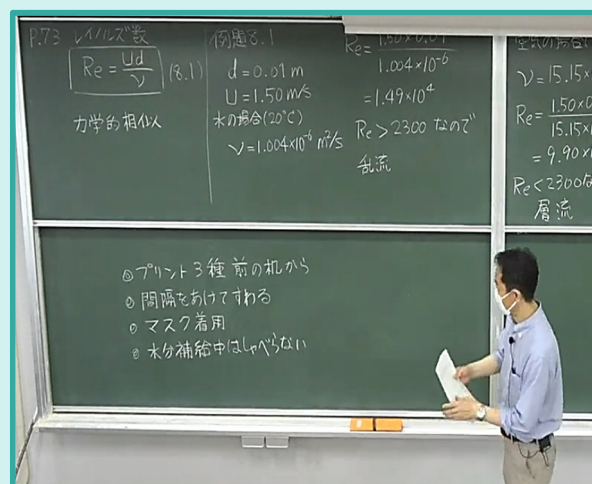 P.73 レイノルズ数
Re = Ud/ν (8.1)
力学的相似
例題8.1
d = 0.01 m
U = 1.50 m/s
水の場合(20°C)
ν = 1.004×10⁻⁶ m²/s
Re = 1.50×0.01
1.004×10⁻⁶
= 1.49×10⁴
Re > 2300 なので
乱流
空気の場合
ν = 15.15×
Re = 1.50×0
15.15×1
= 9.90×1
Re < 2300な
層流
プリント3種 前の机から
間隔をあけてすわる
マスク着用
水分補給中はしゃべらない